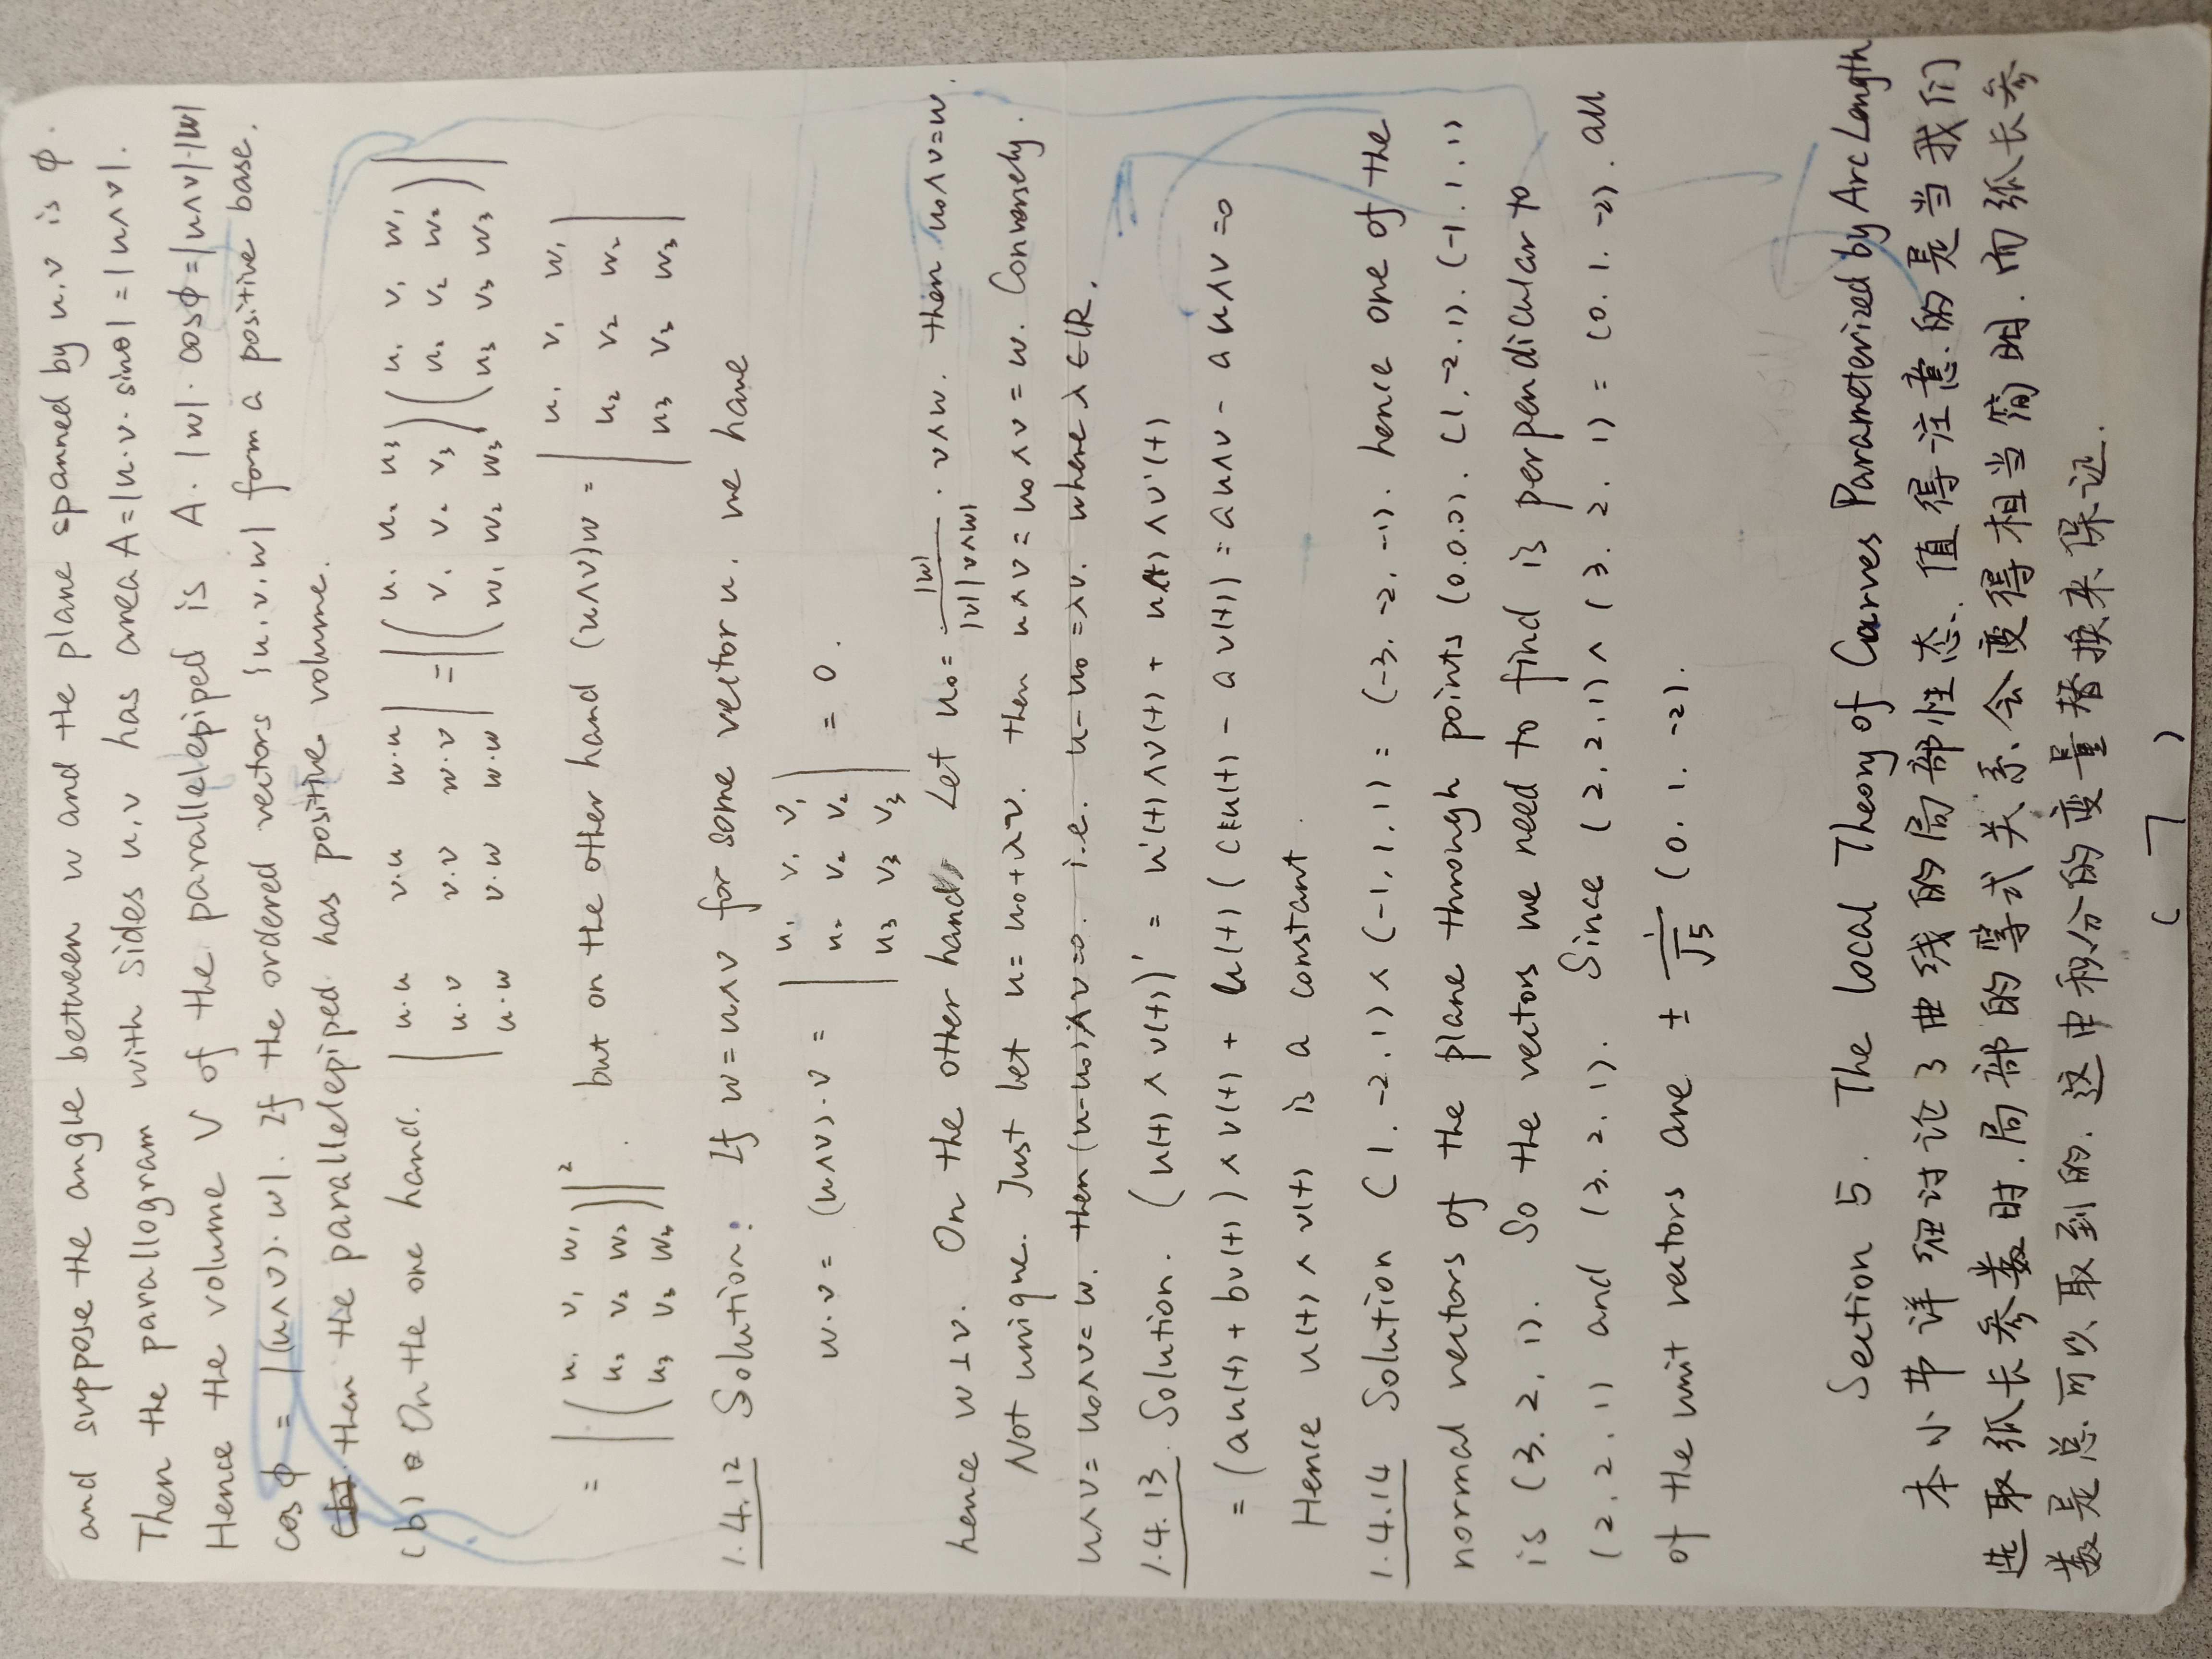 and suppose the angle between w and the plane spanned by u.v is ϕ.
Then the parallogram with sides u.v has area A=|u·v·sinθ|=|u∧v|.
Hence the volume V of the parallelepiped is A·|w|·cosϕ=|u∧v|·|w|
cosϕ = |(u∧v)·w|. If the ordered vectors {u,v,w} form a positive base.
then the parallelepiped has positive volume.
(b) On the one hand. | u·u v·u w·u | = |( u₁ u₂ u₃ )( u₁ v₁ w₁ )|
| u·v v·v w·v | |( v₁ v₂ v₃ )( u₂ v₂ w₂ )|
| u·w v·w w·w | |( w₁ w₂ w₃ )( u₃ v₃ w₃ )|
= |( u₁ v₁ w₁ )|² . but on the other hand (u∧v)w = | u₁ v₁ w₁ |
|( u₂ v₂ w₂ )| | u₂ v₂ w₂ |
|( u₃ v₃ w₃ )| | u₃ v₃ w₃ |
1.4.12 Solution: If w=u∧v for some vector u. we have
w·v = (u∧v)·v = | u₁ v₁ v₁ | = 0.
| u₂ v₂ v₂ |
| u₃ v₃ v₃ |
hence w⊥v. On the other hand, Let u₀ = |w|/|v||v∧w| · v∧w. then u₀∧v=w.
Not unique. Just let u=u₀+λv. then u∧v=u₀∧v=w. Conversely.
u∧v=u₀∧v=w. then (u-u₀)∧v=0. i.e. u-u₀=λv. where λ∈ℝ.
1.4.13 Solution. (u(t)∧v(t))' = u'(t)∧v(t) + u(t)∧v'(t)
= (au(t)+bv(t))∧v(t) + u(t)(cu(t)-av(t)) = au∧v - au∧v=0
Hence u(t)∧v(t) is a constant.
1.4.14 Solution (1.-2.1)∧(-1.1.1) = (-3.-2.-1). hence one of the
normal vectors of the plane through points (0.0.0). (1.-2.1). (-1.1.1)
is (3.2.1). So the vectors we need to find is perpendicular to
(2.2.1) and (3.2.1). Since (2.2.1)∧(3.2.1) = (0.1.-2). all
of the unit vectors are ± 1/√5 (0.1.-2).
Section 5. The Local Theory of Curves Parameterized by Arc Length
本小节详细讨论了曲线的局部性态. 值得注意的是当我们
选取弧长参数时.局部的等式关系会变得相当简明.而弧长参
数是总可以取到的. 这由积分的变量替换来保证.
(7)